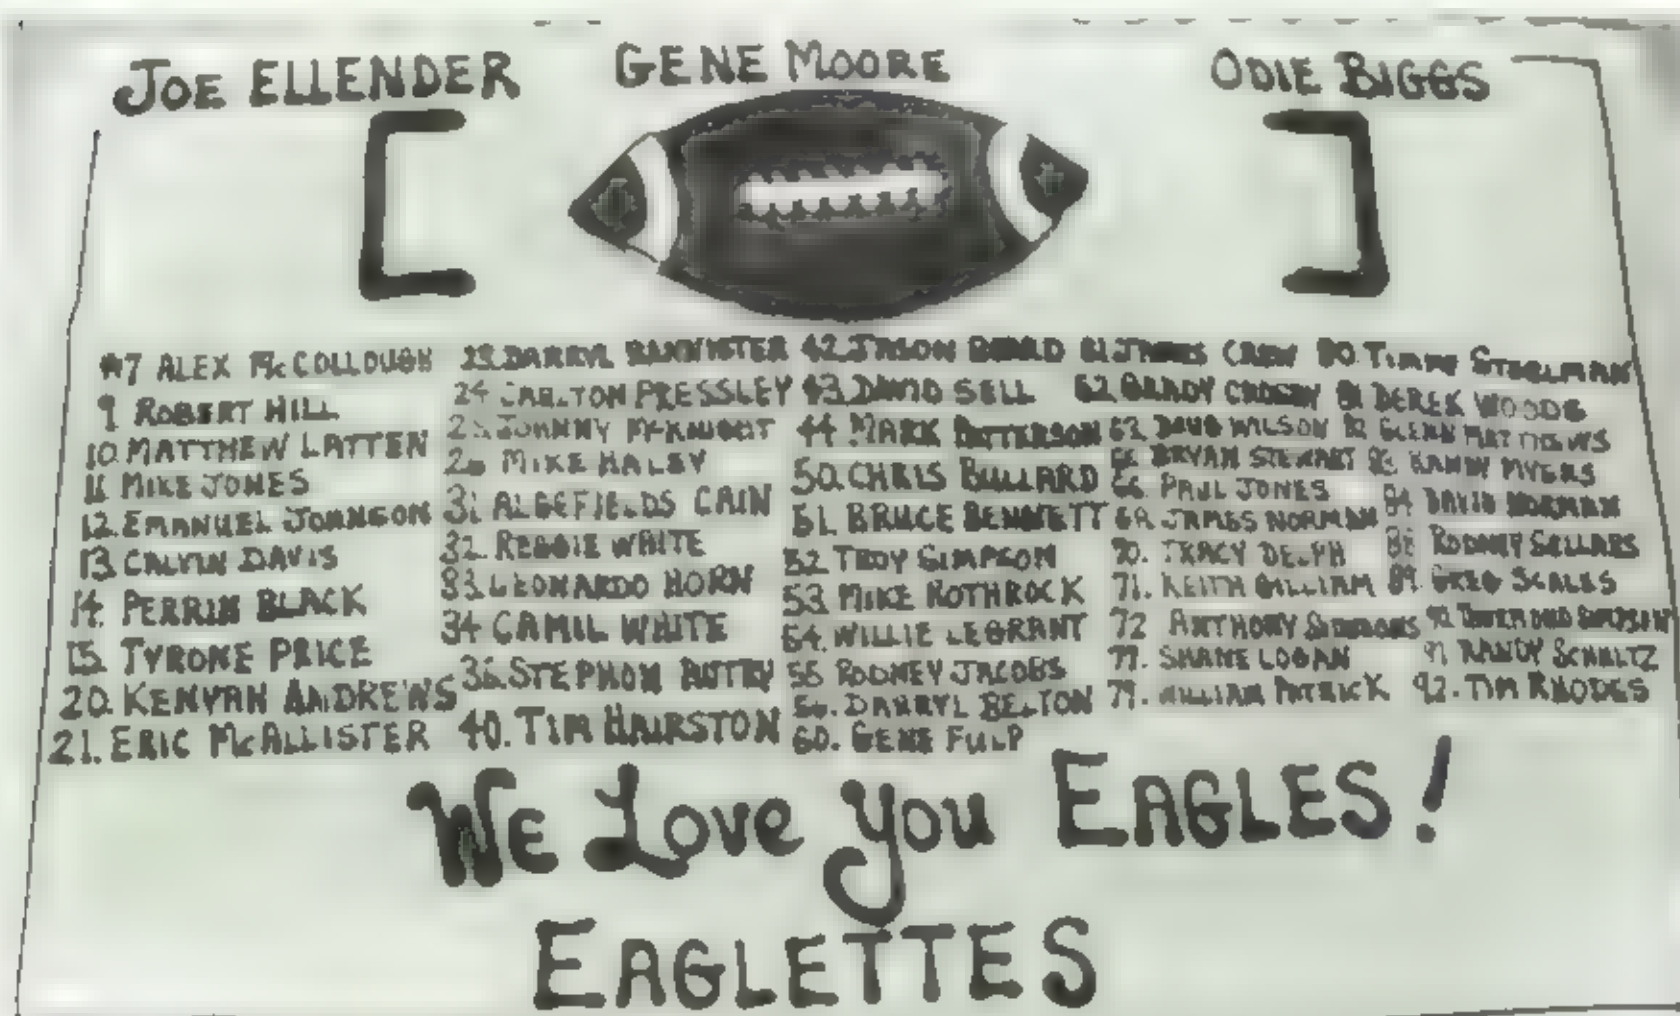 JOE ELLENDER GENE MOORE ODIE BIGGS
#7 ALEX McCOLLOUGH
9 ROBERT HILL
10. MATTHEW LATTEN
11 MIKE JONES
12. EMANUEL JOHNSON
13. CALVIN DAVIS
14. PERRIN BLACK
15. TYRONE PRICE
20. KENYAN ANDREWS
21. ERIC McALLISTER
DARRYL BANNISTER
24 CARLTON PRESSLEY
JOHNNY McKNIGHT
MIKE HALEY
31 CAIN
32. REGGIE WHITE
33. LEONARDO HORN
34 CAMIL WHITE
36. STEPHON AUTRY
40. TIM HAIRSTON
42. JASON
43. DAVID SELL
44. MARK PATTERSON
50. CHRIS BULLARD
51. BRUCE BENNETT
52 TROY SIMPSON
53 MIKE ROTHROCK
54. WILLIE LEGRANT
55 RODNEY JACOBS
56. DARRYL BELTON
60. GENE FULP
61 JAMES CREW
62. GRADY CROSBY
63. DOUG WILSON
BRYAN STEWART
66. PAUL JONES
JAMES NORMAN
70. TRACY DELPH
71. KEITH GILLIAM
72 ANTHONY SIMMONS
77. SHANE LOGAN
79. WILLIAM PATRICK
80. STEELMAN
81 DEREK WOODS
82 GLENN MATTHEWS
RANDY MYERS
84 DAVID NORMAN
RODNEY SELLARS
89. GREG SCALES
91 RANDY SCHULTZ
92. TIM RHODES
WE LOVE YOU EAGLES!
EAGLETTES